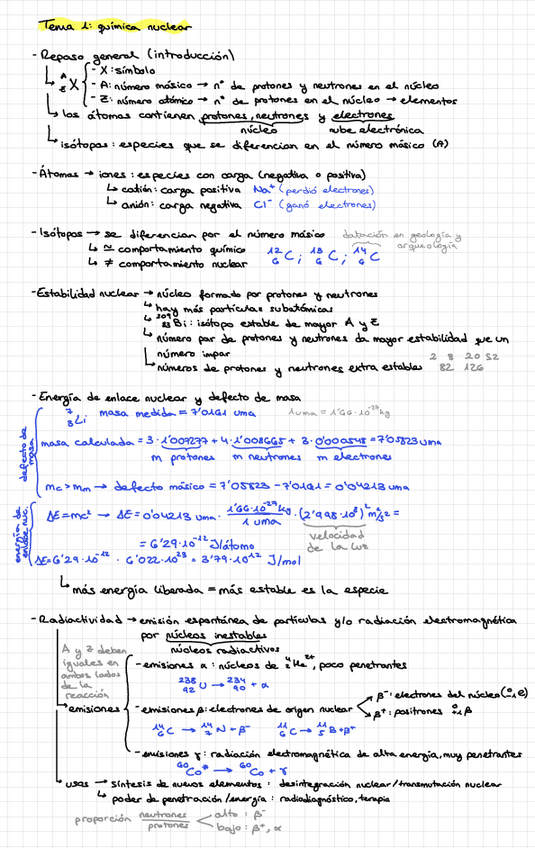 Tema 1: química nuclear
- Repaso general (introducción)
↳ A Z X - X: símbolo
- A: número másico → nº de protones y neutrones en el núcleo
- Z: número atómico → nº de protones en el núcleo → elementos
↳ los átomos contienen protones, neutrones y electrones
núcleo nube electrónica
↳ isótopos: especies que se diferencian en el número másico (A)
- Átomos → iones: especies con carga (negativa o positiva)
↳ catión: carga positiva Na⁺ (perdió electrones)
↳ anión: carga negativa Cl⁻ (ganó electrones)
- Isótopos → se diferencian por el número másico datación en geología y arqueología
↳ ≃ comportamiento químico ¹²₆C; ¹³₆C; ¹⁴₆C
↳ ≠ comportamiento nuclear
- Estabilidad nuclear → núcleo formado por protones y neutrones
↳ hay más partículas subatómicas
↳ ²⁰⁹₈₃Bi: isótopo estable de mayor A y Z
↳ número par de protones y neutrones da mayor estabilidad que un
número impar
↳ números de protones y neutrones extra estables 2 8 20 52
82 126
- Energía de enlace nuclear y defecto de masa
defecto de masa
⁷₃Li masa medida = 7'0161 uma 1uma = 1'66·10⁻²⁷kg
masa calculada = 3·1'007277 + 4·1'008665 + 3·0'000548 = 7'05823 uma
m protones m neutrones m electrones
mc > mm → defecto másico = 7'05823 - 7'0161 = 0'04213 uma
energía de enlace nuc.
ΔE=mc² → ΔE = 0'04213 uma · 1'66·10⁻²⁷kg / 1 uma · (2'998·10⁸)² m²/s² =
velocidad de la luz
= 6'29·10⁻¹² J/átomo
ΔE = 6'29·10⁻¹² · 6'022·10²³ = 3'79·10⁻¹² J/mol
↳ más energía liberada = más estable es la especie
- Radiactividad → emisión espontánea de partículas y/o radiación electromagnética
por núcleos inestables
núcleos radiactivos
A y Z deben
iguales en
ambos lados
de la
reacción
↳ emisiones
- emisiones α: núcleos de ⁴₂He²⁺, poco penetrantes
²³⁸₉₂U → ²³⁴₉₀ + α
- emisiones β: electrones de origen nuclear
β⁻: electrones del núcleo (⁰₋₁e)
β⁺: positrones ⁰₊₁β
¹⁴₆C → ¹⁴₇N + β⁻ ¹¹₆C → ¹¹₅B + β⁺
- emisiones γ: radiación electromagnética de alta energía, muy penetrantes
⁶⁰Co* → ⁶⁰Co + γ
↳ usos → síntesis de nuevos elementos: desintegración nuclear/transmutación nuclear
↳ poder de penetración/energía: radiodiagnóstico, terapia
proporción neutrones / protones
alto: β⁻
bajo: β⁺, α